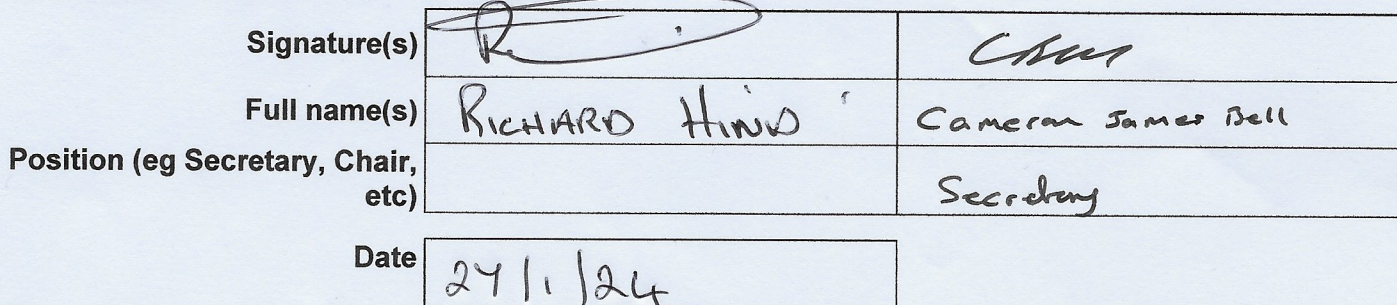 Signature(s)
Full name(s) RICHARD HIND Cameron James Bell
Position (eg Secretary, Chair,
etc) Secretary
Date 27/1/24